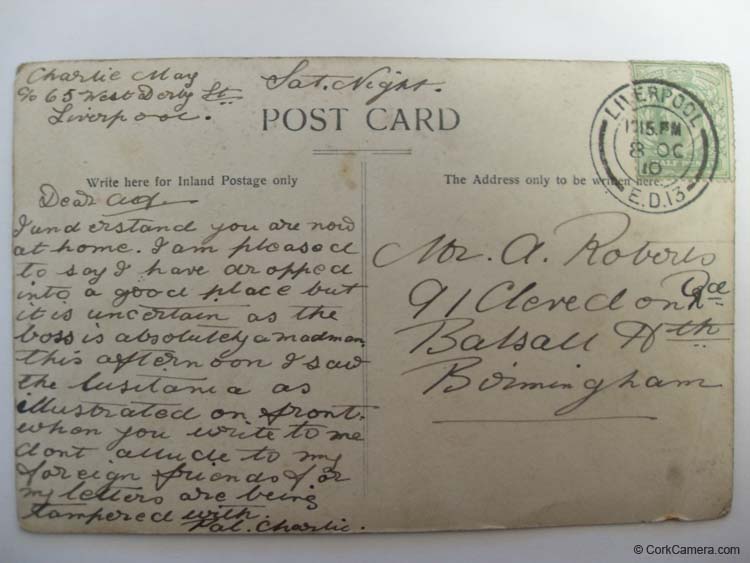 Charlie May
c/o 65 West Derby St.
Liverpool.
Sat. Night.
POST CARD
LIVERPOOL
12.15 PM
8 OC
10
E.D.13
Write here for Inland Postage only
The Address only to be written here.
Dear
I understand you are now
at home. I am pleased
to say I have dropped
into a good place but
it is uncertain as the
boss is absolutely a madman
this afternoon I saw
the Lusitania as
illustrated on front.
when you write to me
dont allude to my
foreign friends for
my letters are being
tampered with.
Pal. Charlie.
Mr. A. Roberts
91 Clevedon Rd
Balsall Hth
Birmingham
© CorkCamera.com